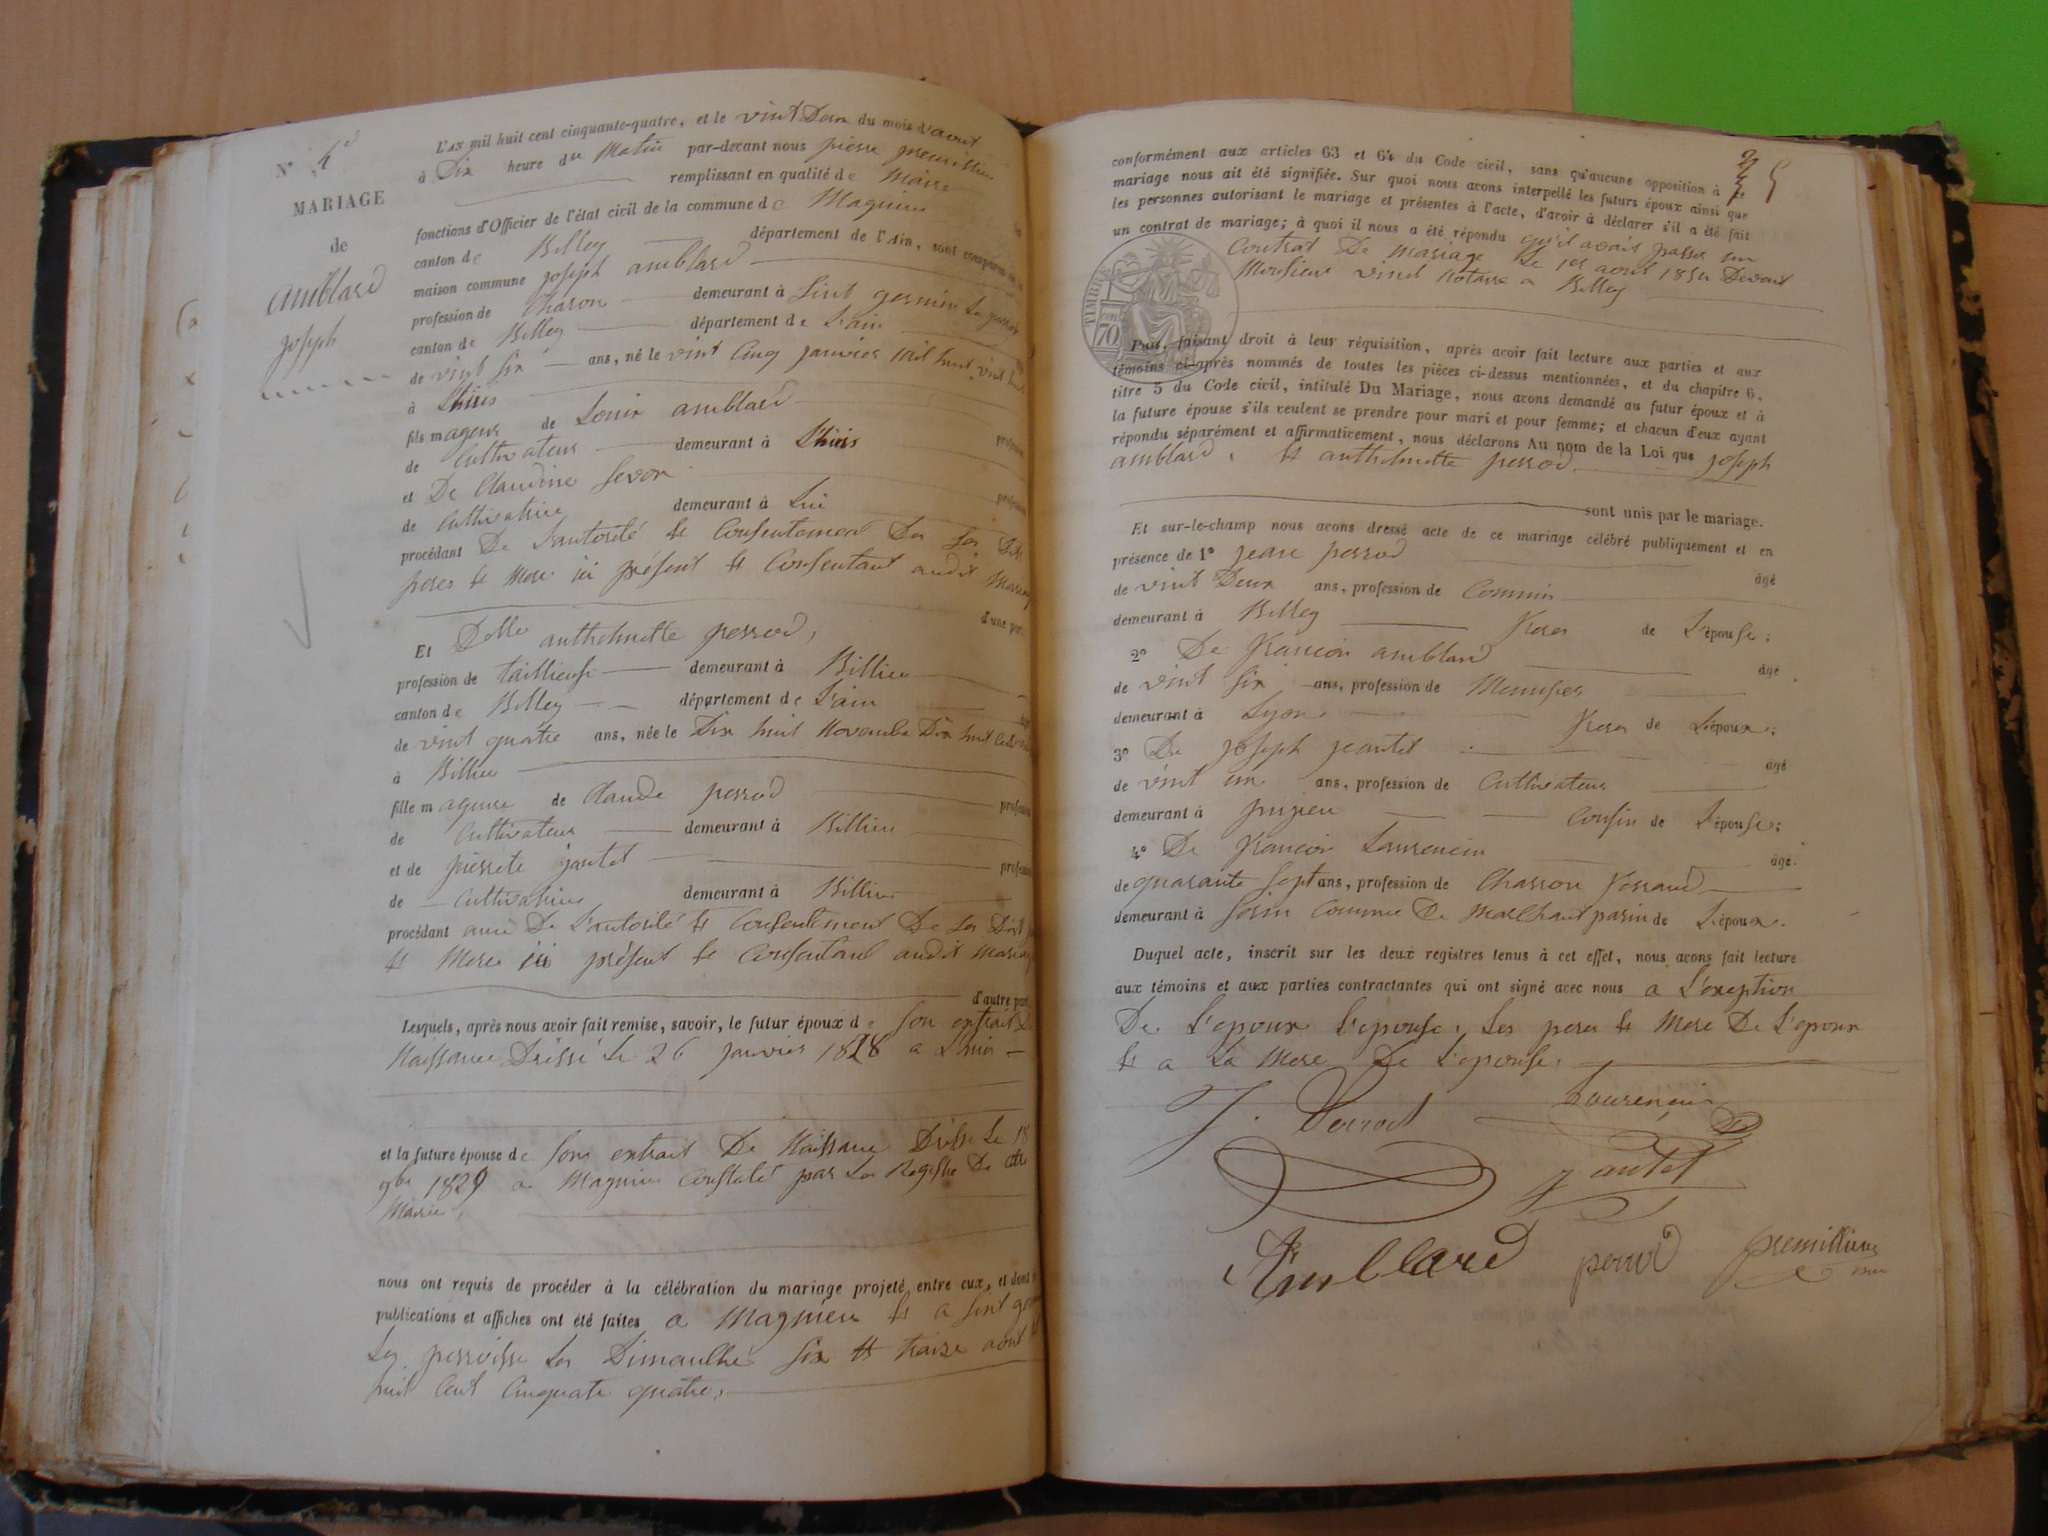 N° 4
MARIAGE
de
amblard
joseph
L'AN mil huit cent cinquante-quatre, et le vint Deux du mois d'aout
à Dix heure du Matin par-devant nous pierre premillieu
remplissant en qualité de Maire
fonctions d'Officier de l'état civil de la commune de Magnieu
canton de Belley département de l'Ain, sont comparus en
maison commune joseph amblard
profession de Charon demeurant à Sint germin Les
canton de Belley département de L'ain
de vint six ans, né le vint Cinq janvier mil huit vint huit
à
fils mageur de Louis amblard
de Cultivateur demeurant à
et De Claudine
de Cultivatrice demeurant à
procédant De L'autorité et Consentement Des Ses Dits
peres et Mere ici présent et Consentant audit Mariage
d'une part.
Et Delle anthelmette perrod,
profession de taillieuse demeurant à Billieu
canton de Belley département de L'ain
de vint quatre ans, née le Dix huit Novembre Dix huit Cent
à Billieu
fille mageure de Claude perrod
de Cultivateur demeurant à Billieu
et de pierrete jantet
de Cultivatrice demeurant à Billieu
procédant ausi De L'autorité et Consentement De Ses Dits
et Mere ici présent et Consentant audit Mariage
d'autre part.
Lesquels, après nous avoir fait remise, savoir, le futur époux de son extrait De
Naissance Dressé Le 26 janvier 1828 a
et la future épouse de Son extrait De Naissance Dresse Le 18
9bre 1829 a Magnieu Constaté par Les Registre De cette
Mairie,
nous ont requis de procéder à la célébration du mariage projeté entre eux, et dont
publications et affiches ont été faites a Magnieu et a Sint
Les perroisse Les Dimanche Six et traize aout
huit Cent Cinquate quatre,
conformément aux articles 63 et 64 du Code civil, sans qu'aucune opposition à ce
mariage nous ait été signifiée. Sur quoi nous avons interpellé les futurs époux ainsi que
les personnes autorisant le mariage et présentes à l'acte, d'avoir à déclarer s'il a été fait
un contrat de mariage; à quoi il nous a été répondu qu'il avait passer un
Contrat De Mariage Le 1er aout 1854 Devant
Monsieur vinet Notaire a Belley
TIMBRE
70
Puis, faisant droit à leur réquisition, après avoir fait lecture aux parties et aux
témoins ci-après nommés de toutes les pièces ci-dessus mentionnées, et du chapitre 6,
titre 5 du Code civil, intitulé Du Mariage, nous avons demandé au futur époux et à
la future épouse s'ils veulent se prendre pour mari et pour femme; et chacun d'eux ayant
répondu séparément et affirmativement, nous déclarons Au nom de la Loi que joseph
amblard, et anthelmette perrod,
sont unis par le mariage.
Et sur-le-champ nous avons dressé acte de ce mariage célébré publiquement et en
présence de 1° jean perrod âgé
de vint Deux ans, profession de Commis
demeurant à Belley freres de L'épouse;
2° De francois amblard âgé
de vint six ans, profession de Menusier
demeurant à Lyon frere de L'époux;
3° De joseph jeantet âgé
de vint un ans, profession de Cultivateur
demeurant à pugieu Cousin de L'épouse;
4° De francois Laurencin âgé
de quarante Sept ans, profession de Charron
demeurant à Commune De parin de L'époux.
Duquel acte, inscrit sur les deux registres tenus à cet effet, nous avons fait lecture
aux témoins et aux parties contractantes qui ont signé avec nous a L'exeption
De L'epoux L'epouse, Les peres et Mere De L'epoux
et a La Mere De L'epouse,
J. Perrod Laurencin
Jantet
Amblard perrod premillieu